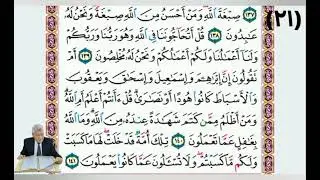 (٢١)
١٣٧ صِبْغَةَ ٱللَّهِ وَمَنْ أَحْسَنُ مِنَ ٱللَّهِ صِبْغَةً وَنَحْنُ لَهُۥ
عَٰبِدُونَ ١٣٨ قُلْ أَتُحَآجُّونَنَا فِى ٱللَّهِ وَهُوَ رَبُّنَا وَرَبُّكُمْ
وَلَنَآ أَعْمَٰلُنَا وَلَكُمْ أَعْمَٰلُكُمْ وَنَحْنُ لَهُۥ مُخْلِصُونَ ١٣٩ أَمْ
تَقُولُونَ إِنَّ إِبْرَٰهِۦمَ وَإِسْمَٰعِيلَ وَإِسْحَٰقَ وَيَعْقُوبَ
وَٱلْأَسْبَاطَ كَانُوا۟ هُودًا أَوْ نَصَٰرَىٰ قُلْ ءَأَنتُمْ أَعْلَمُ أَمِ ٱللَّهُ
وَمَنْ أَظْلَمُ مِمَّن كَتَمَ شَهَٰدَةً عِندَهُۥ مِنَ ٱللَّهِ وَمَا ٱللَّهُ
بِغَٰفِلٍ عَمَّا تَعْمَلُونَ ١٤٠ تِلْكَ أُمَّةٌ قَدْ خَلَتْ لَهَا مَا كَسَبَتْ
وَلَكُم مَّا كَسَبْتُمْ وَلَا تُسْـَٔلُونَ عَمَّا كَانُوا۟ يَعْمَلُونَ ١٤١